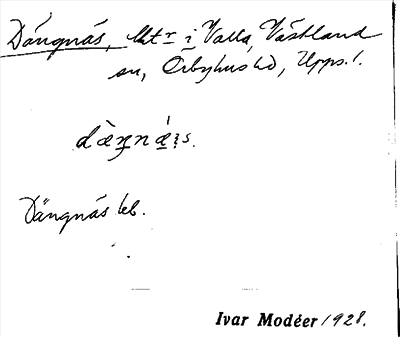 Dängnäs, lht r i Valla, Västland
sn, Örbyhus hd, Upps. l.
dæ̀ŋnǽ:s.
Dängnäs eb.
Ivar Modéer 1928.